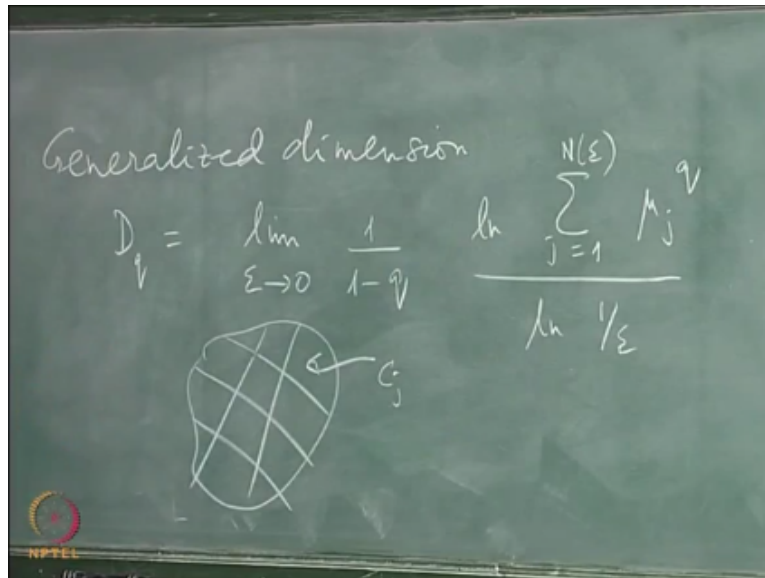 Generalized dimension
D_q = lim_{ε→0} 1/(1-q) ln ∑_{j=1}^{N(ε)} μ_j^q / ln 1/ε
C_j
NPTEL